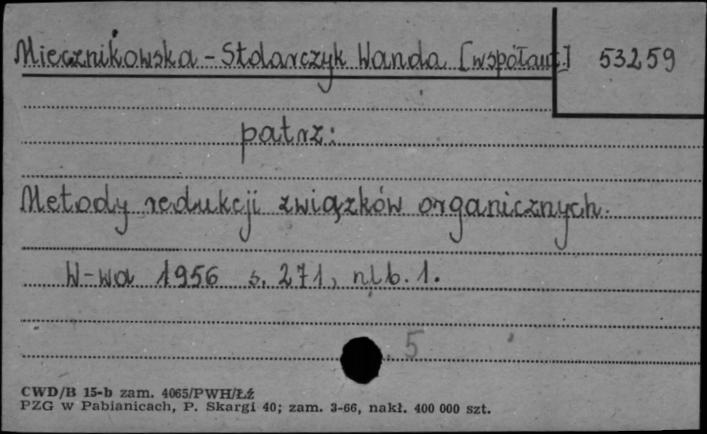 Miecznikowska - Stolarczyk Wanda [współaut.] 53259
patrz:
Metody redukcji związków organicznych.
W-wa 1956 s. 271, nlb. 1.
5
CWD/B 15-b zam. 4065/PWH/Łż
PZG w Pabianicach, P. Skargi 40; zam. 3-66, nakł. 400 000 szt.